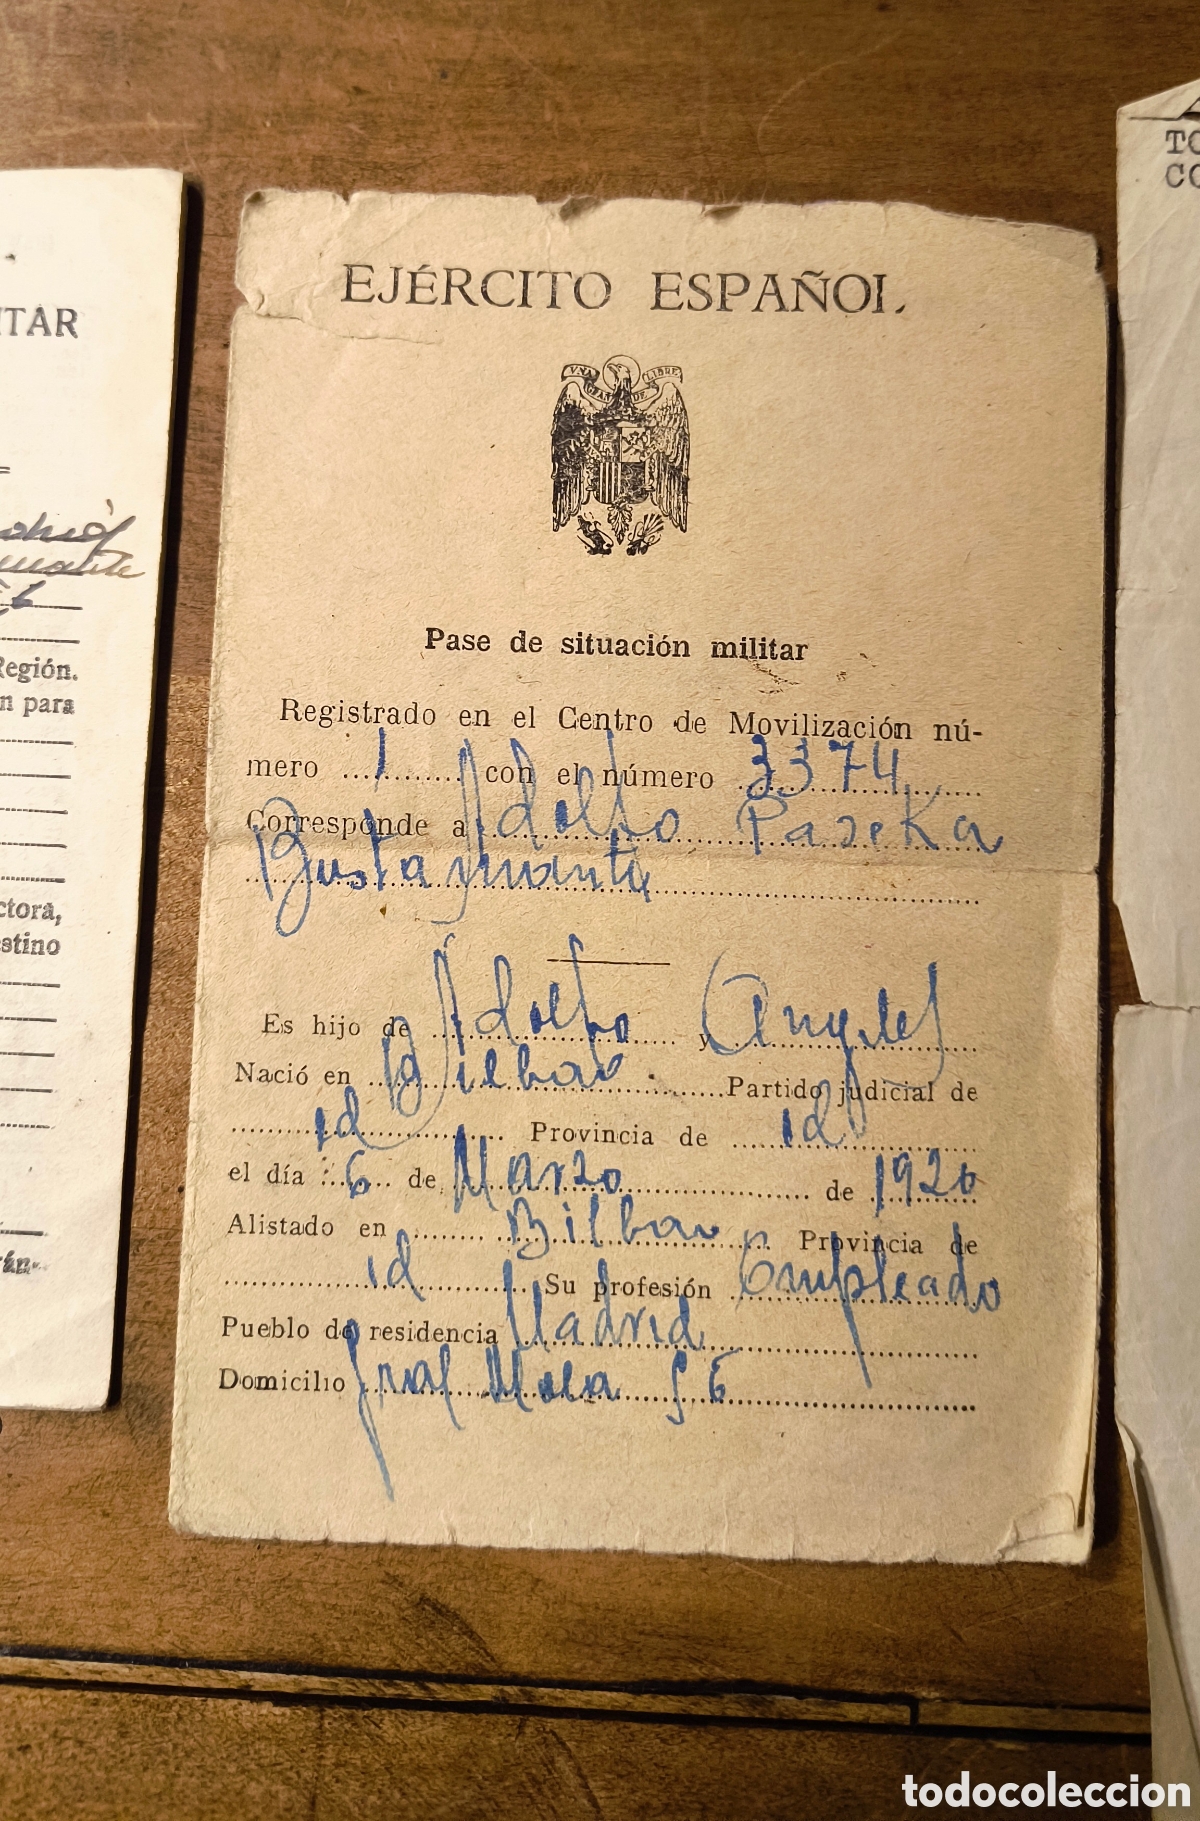 ITAR
Región.
n para
ctora,
stino
TO
CO
EJÉRCITO ESPAÑOL.
UNA GRANDE LIBRE
Pase de situación militar
Registrado en el Centro de Movilización nú-
mero 1 con el número 3374
Corresponde a Adolfo Paseka
Bustamante
Es hijo de Adolfo y Angeles
Nació en Bilbao Partido judicial de
id Provincia de id
el día 6 de Marzo de 1920
Alistado en Bilbao Provincia de
id Su profesión Empleado
Pueblo de residencia Madrid
Domicilio Gral Mola 56
todocoleccion